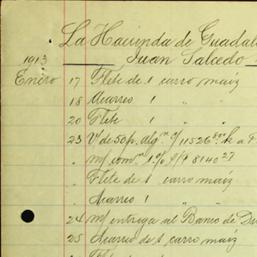 La Hacienda de Guadal
Juan Salcedo
1913
Enero 17 Flete de 1 carro maíz
18 Acarreo 1 " "
20 Flete 1 " "
23 Vta de 50 p. alg.ón c/ 11526 80 k a $
" m/ com.ón 1% s/ $ 8140 27
" Flete de 1 carro maíz
" Acarreo 1 " "
24 m/ entrega al Banco de Du
25 Acarreo de 1 carro maíz